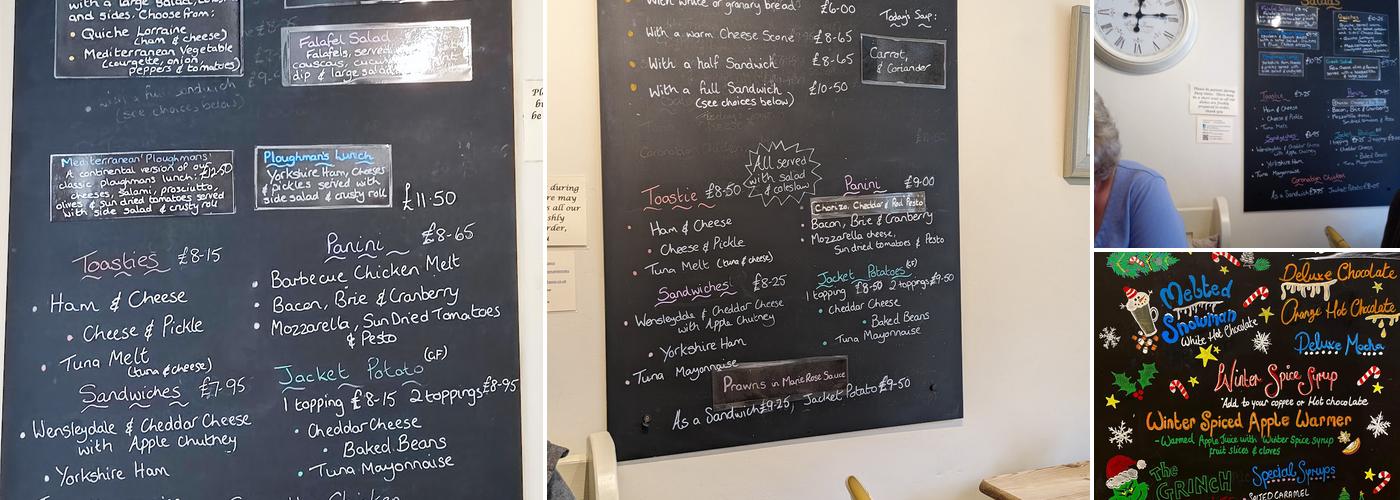 with a large salad, 
and sides. Choose from:
• Quiche Lorraine
(ham & cheese)
• Mediterranean Vegetable
(courgette, onion,
peppers & tomatoes)
with a full sandwich
(see choices below)
Falafel Salad
Falafels, served
couscous, cucumber
dip & large salad
Mediterranean Ploughmans:
A continental version of our
classic ploughmans lunch: £12.50
cheeses, Salami, prosciutto,
olives & sun dried tomatoes served
with side salad & crusty roll
Ploughman's Lunch
Yorkshire Ham, Cheeses
& pickles served with
side salad & crusty roll
£11.50
Toasties £8-15
• Ham & Cheese
• Cheese & Pickle
• Tuna Melt
(tuna & cheese)
Sandwiches £7-95
• Wensleydale & Cheddar Cheese
with Apple Chutney
• Yorkshire Ham
Panini £8-65
• Barbecue Chicken Melt
• Bacon, Brie & Cranberry
• Mozzarella, Sun Dried Tomatoes
& Pesto
Jacket Potato (GF)
1 topping £8-15 2 toppings £8-95
• Cheddar Cheese
• Baked Beans
• Tuna Mayonnaise
With bruce or granary bread £6-00
With a warm Cheese Scone £8-65
With a half Sandwich £8-65
With a full Sandwich £10-50
(see choices below)
Today's Soup:
Carrot,
& Coriander
All served
with salad
& coleslaw
Toastie £8-50
• Ham & Cheese
• Cheese & Pickle
• Tuna Melt (tuna & cheese)
Sandwiches £8-25
• Wensleydale & Cheddar Cheese
with Apple Chutney
• Yorkshire Ham
• Tuna Mayonnaise
Panini £9-00
Chorizo, Cheddar & Red Pesto
• Bacon, Brie & Cranberry
• Mozzarella cheese,
Sun dried tomatoes & Pesto
Jacket Potatoes (GF)
1 topping £8-50 2 toppings £9-50
• Cheddar Cheese
• Baked Beans
• Tuna Mayonnaise
Prawns in Marie Rose Sauce
As a Sandwich £9-25, Jacket Potato £9-50
during
re may
all our
shly
rder,
Salads
Falafel Salad
Quiches
Toastie
Ham & Cheese
• Cheese & Pickle
Tuna Melt
Panini
Bacon, Brie & Cranberry
Mozzarella cheese,
Sun dried tomatoes & Pesto
Sandwiches
Wensleydale & Cheddar Cheese
with Apple Chutney
• Yorkshire Ham
• Tuna Mayonnaise
Jacket Potatoes
• Cheddar Cheese
• Baked Beans
• Tuna Mayonnaise
Coronation Chicken
Melted
Snowman
White Hot Chocolate
Deluxe Chocolate
Orange Hot Chocolate
Deluxe Mocha
Winter Spice Syrup
Add to your coffee or Hot chocolate
Winter Spiced Apple Warmer
- Warmed Apple Juice with Winter spice syrup
fruit slices & cloves
THE
GRINCH
Special Syrups
SALTED CARAMEL